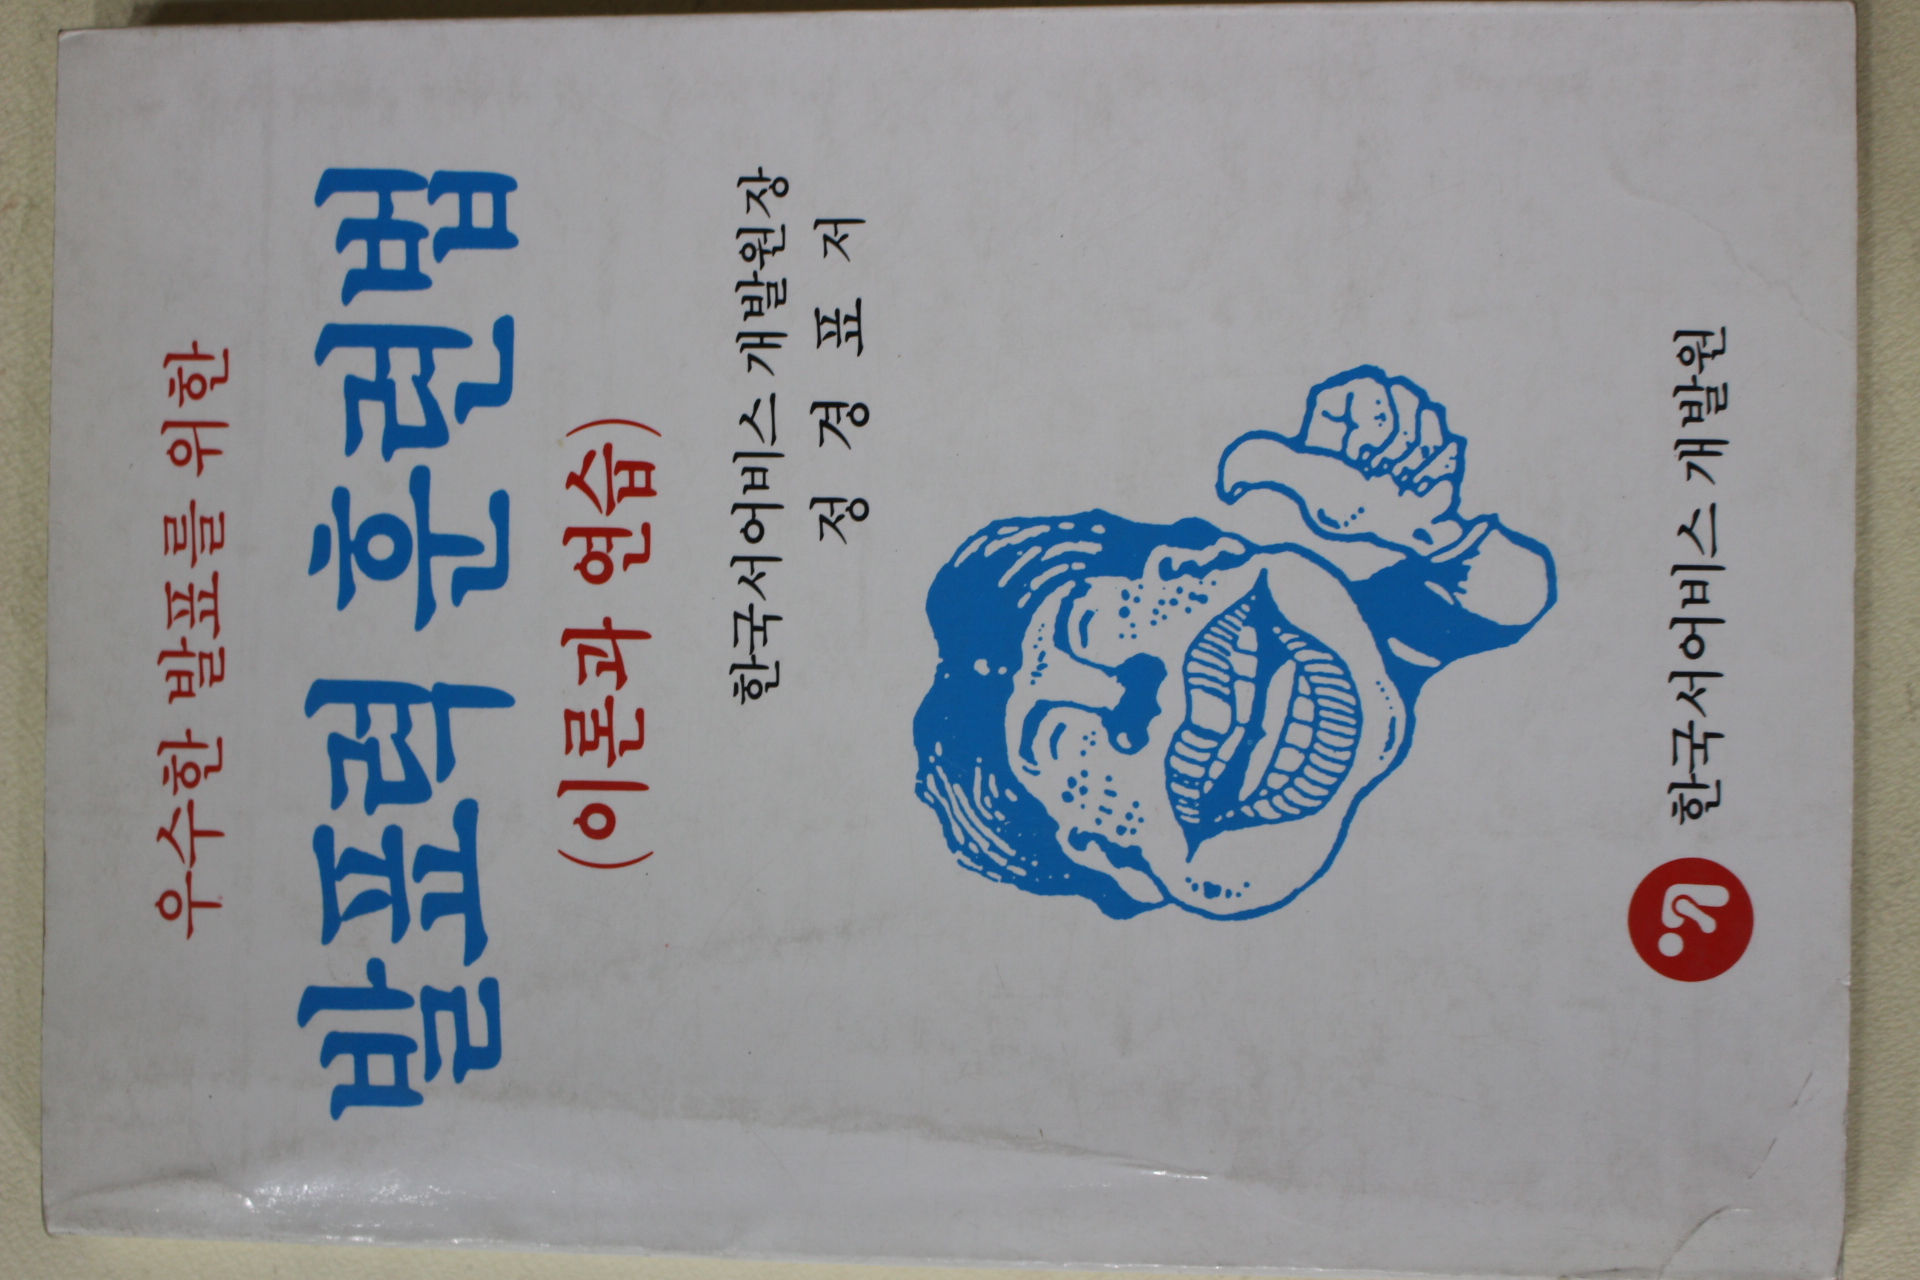 우수한 발표를 위한
발표력 훈련법
(이론과 연습)
한국서어비스 개발원장
정 경 표 저
한국서어비스 개발원